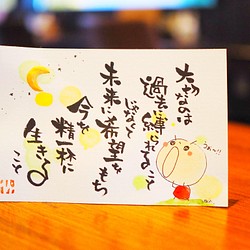 大切なのは
過去に縛られること
じゃなくて
未来に希望をもち
今を
精一杯に
生きること